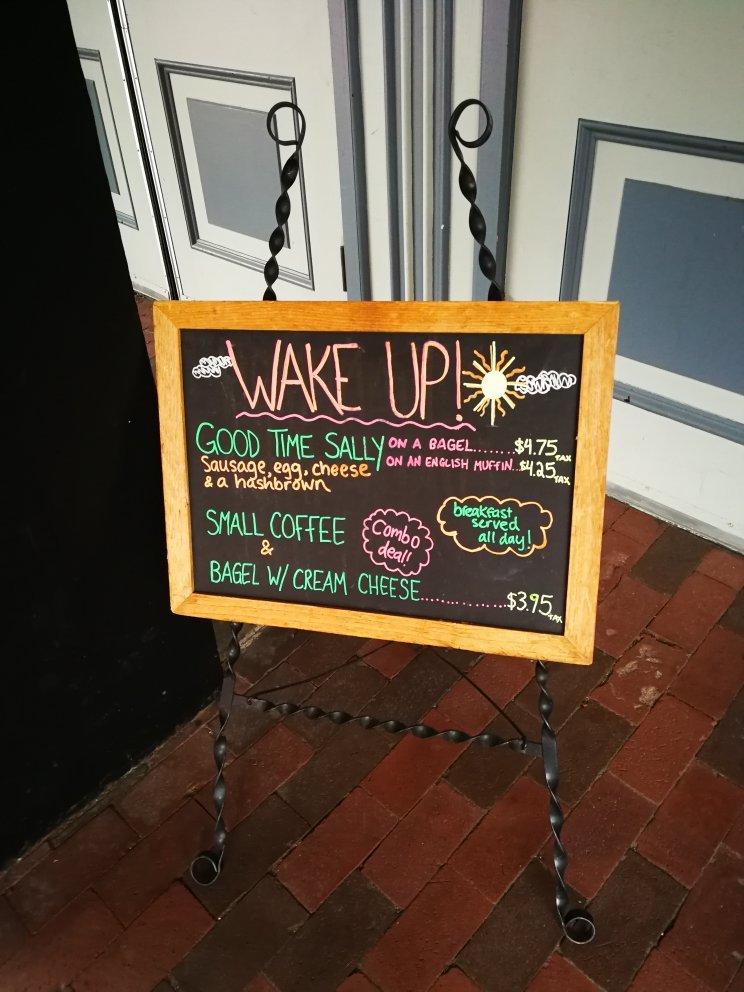 WAKE UP!
GOOD TIME SALLY ON A BAGEL........$4.75 TAX
ON AN ENGLISH MUFFIN..$4.25 TAX
Sausage, egg, cheese
& a hashbrown
SMALL COFFEE
&
BAGEL W/ CREAM CHEESE..............$3.95 TAX
Combo
deal!
breakfast
served
all day!